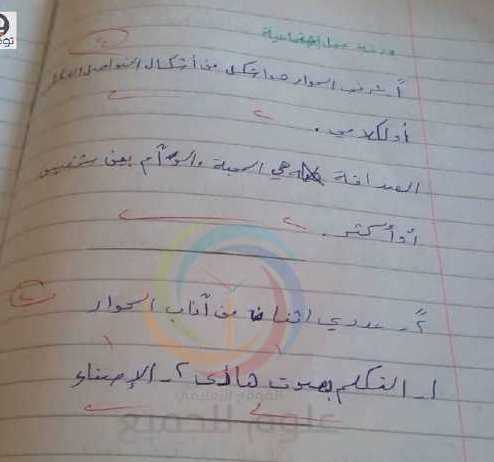 ورقة عمل اجتماعية
أ- عرفي الحوار هو شكل من أشكال التواصل
أو الكلامي.
الصداقة هي المحبة والوئام بين شخصين
أو أكثر.
٢- عددي اثنان من آداب الحوار
١- التكلم بصوت هادئ ٢- الإصغاء
الموقع التعليمي
علوم للجميع